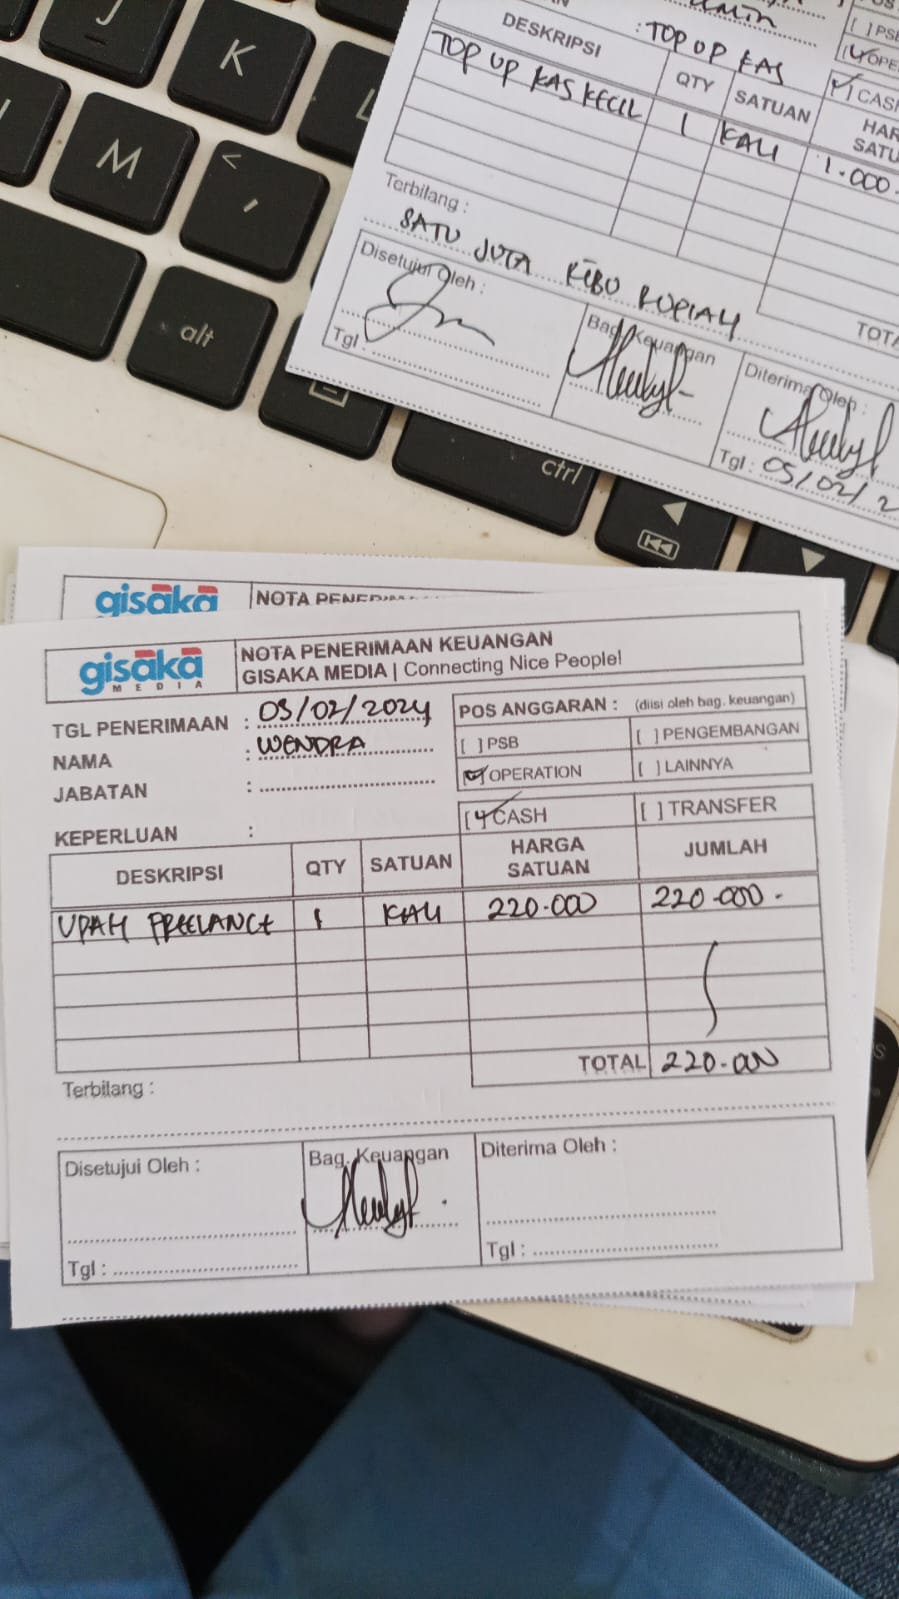 J
K
L
M
<
,
alt
ctrl
DESKRIPSI
: TOP UP KAS
QTY
SATUAN
HAR
SATU
[ ] PSB
OPE
CASH
TOP UP KAS KECIL 1 KALI 1.000.
Terbilang :
SATU JUTA RIBU RUPIAH
TOTA
Disetujui Oleh :
Bag. Keuangan
Diterima Oleh :
Tgl :
Tgl : 05/02/2
gisaka NOTA PENERIMA
gisaka
MEDIA
NOTA PENERIMAAN KEUANGAN
GISAKA MEDIA | Connecting Nice People!
TGL PENERIMAAN : 05/02/2024
NAMA : WENDRA
JABATAN :
KEPERLUAN :
POS ANGGARAN : (diisi oleh bag. keuangan)
[ ] PSB [ ] PENGEMBANGAN
[✓] OPERATION [ ] LAINNYA
[✓] CASH [ ] TRANSFER
DESKRIPSI QTY SATUAN HARGA SATUAN JUMLAH
UPAH FREELANCE 1 KALI 220.000 220.000.
TOTAL 220.000
Terbilang :
Disetujui Oleh : Bag. Keuangan Diterima Oleh :
Tgl : Tgl :